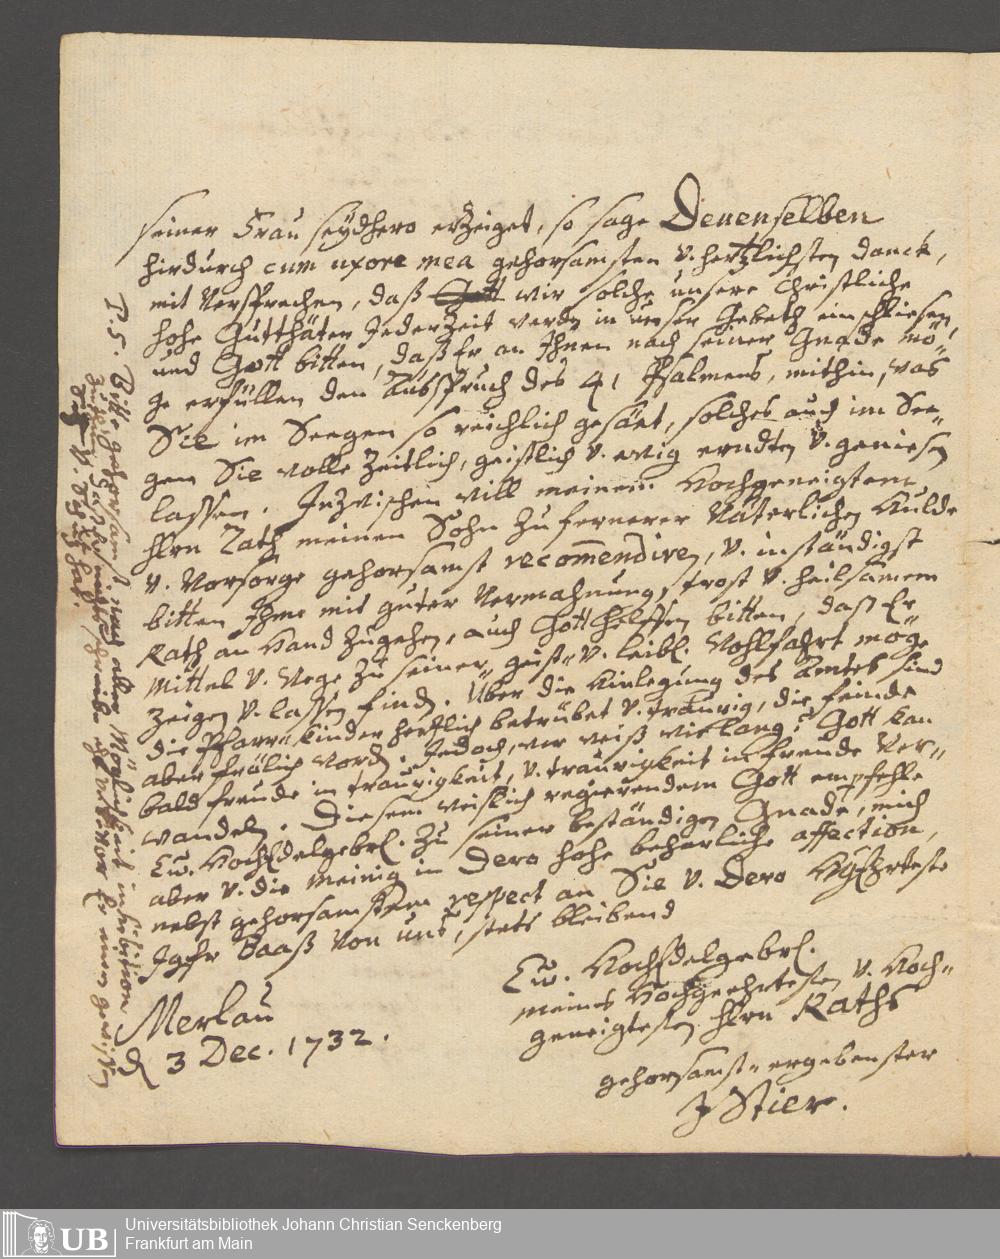 seiner Frau seydhero erzeiget, so sage Denenselben
hirdurch cum uxore mea gehorsamsten v. hertzlichsten danck,
mit Versprechen, daß Gott wir solche unsere Christliche
hohe Gutthäter Jederzeit werdn in unser Gebeth einschliesen,
und Gott bitten, daß Er an Ihnen nach seiner Gnade mö-
ge erfüllen den Ausspruch des 41 Psalmens, mithin, was
Sie im Seegen so reichlich gesäet, solches auch im See-
gen Sie wolle Zeitlich, geistlich v. ewig erndten v. geniesen
lassen. Inzwischen will meinem Hochgeneigtem
Hrn Rath meinen Sohn zu fernerer Väterlichen Hulde
v. Vorsorge gehorsamst recom̄endiren, v. inständigst
bitten Ihme mit guter Vermahnung, trost v. heilsamem
Rath an Hand zugehen, auch Gott helffen bitten, daß Er
Mittel v. Wege zu seiner geist- v. leibl. Wohlfahrt möge
zeigen v. lassen finden. Über die Hinlegung des Amtes sind
die Pfarrkinder hertzlich betrübet v. traurig, die feinde
aber frölich word. Jedoch, wer weiß wie lang? Gott kan
bald freude in traurigkeit, v. traurigkeit in freude Ver-
wandeln. Diesem weislich regierendem Gott empfehle
Ew. HochEdelgebrl. zu seiner beständigen Gnade, mich
aber v. die Meinig in Dero hohe beharliche affection,
nebst gehorsamstem respect an Sie v. Dero
Jgfr Baaß von uns, stets bleibend
Ew. HochEdelgebrl.
meines Hochgeehrtesten v. Hoch-
geneigtesten Hrn Raths
Merlau
d 3 Dec. 1732.
gehorsamst-ergebenster
J Stier.
P.S. Bitte gehorsamst nach aller Möglichkeit